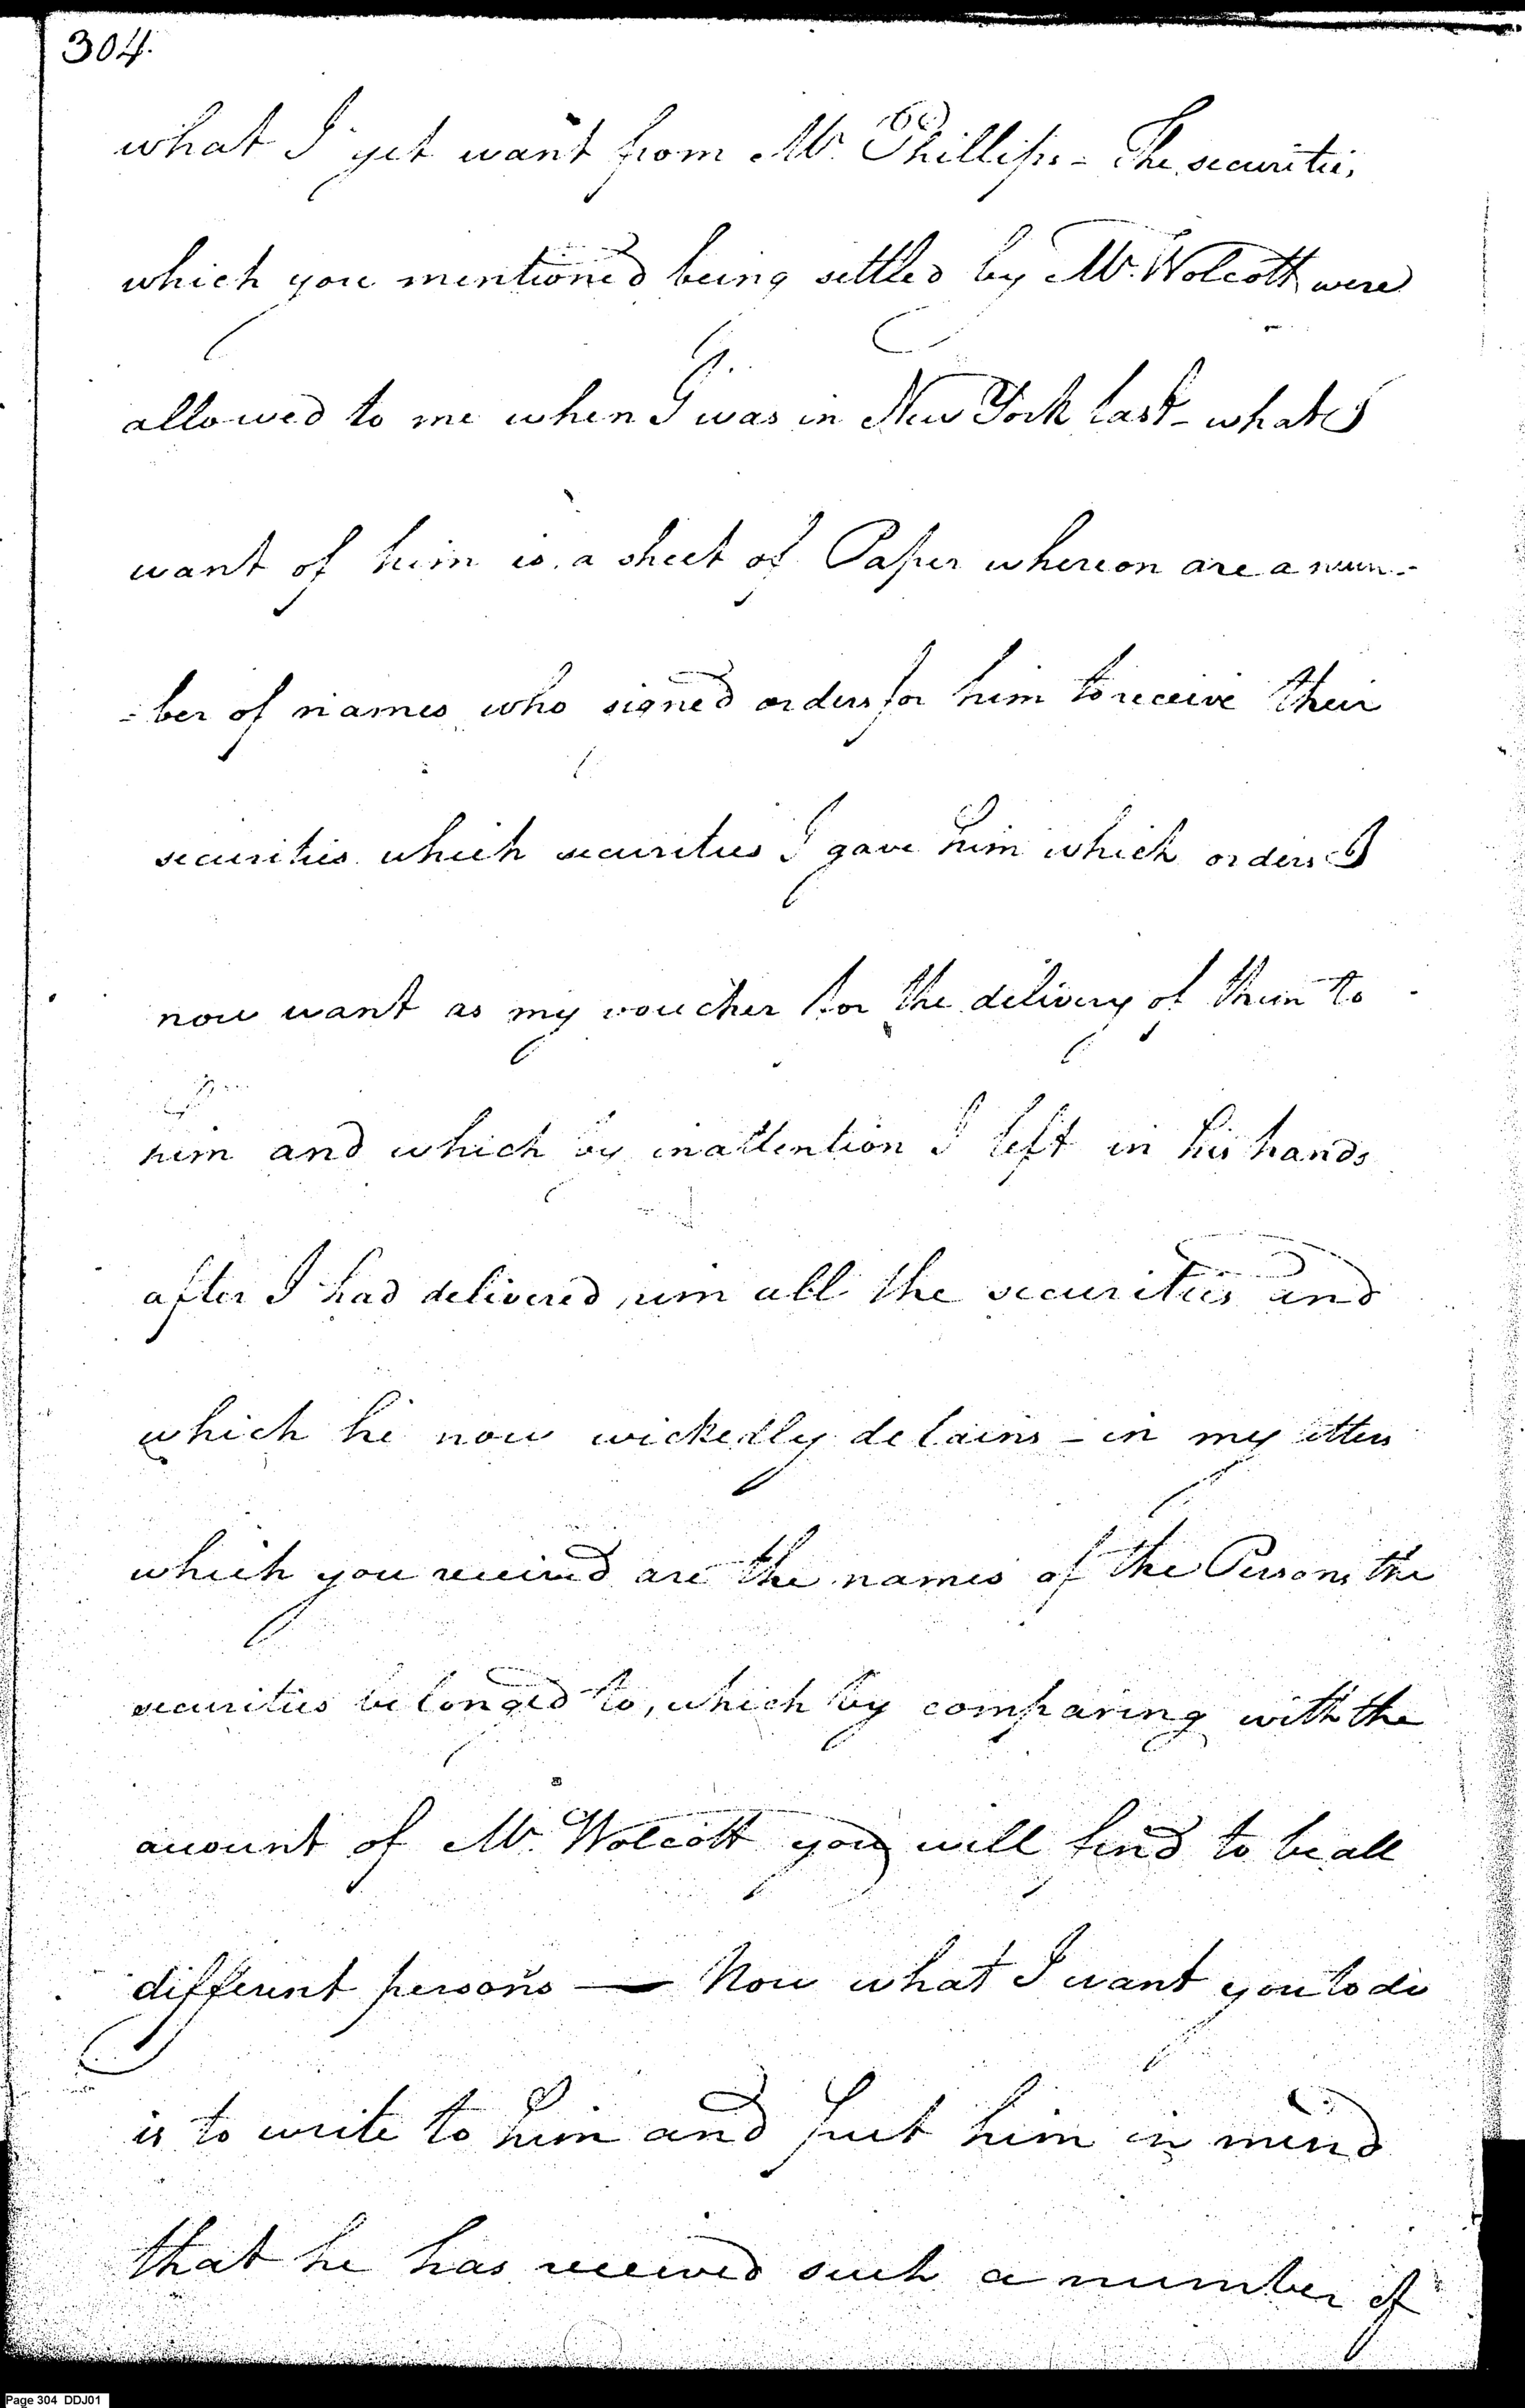 304.
what I yet want from Mr. Phillips - The securities
which you mentioned being settled by Mr. Wolcott were
allowed to me when I was in New York last - what I
want of him is a sheet of Paper whereon are a num-
-ber of names who signed orders for him to receive their
securities which securities I gave him which orders I
now want as my voucher for the delivery of them to
him and which by inattention I left in his hands
after I had delivered him all the securities and
which he now wickedly detains - in my letters
which you received are the names of the Persons the
securities belonged to, which by comparing with the
account of Mr. Wolcott you will find to be all
different persons — Now what I want you to do
is to write to him and put him in mind
that he has received such a number of
Page 304 DDJ01